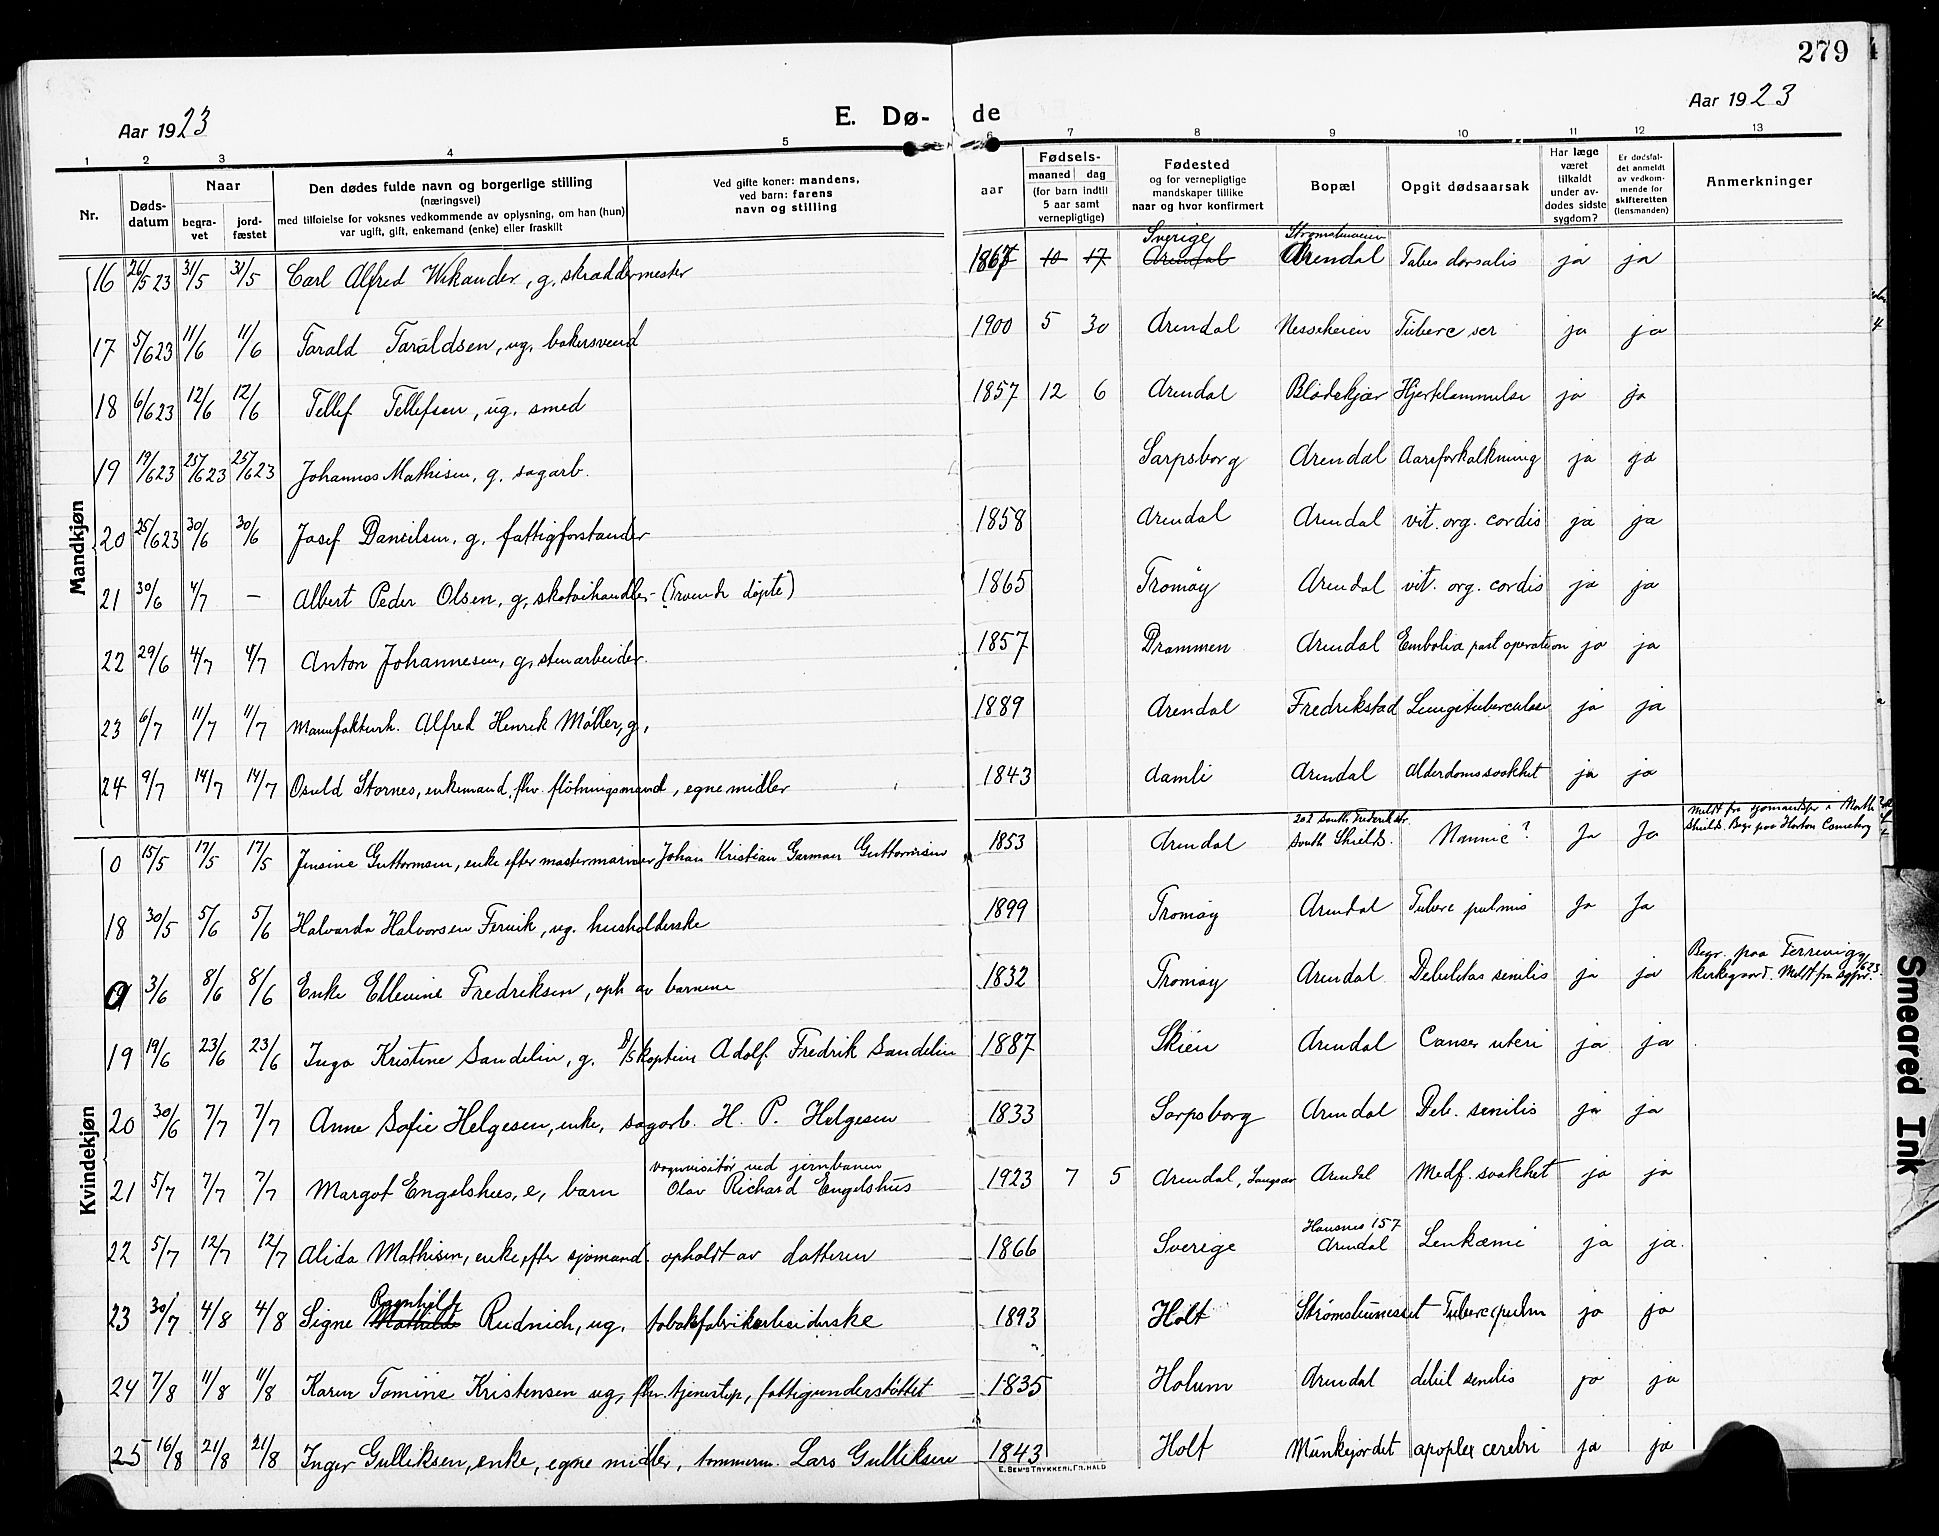 279
Aar 1923
E. Dø- de
Aar 1923
1 2 3 4 5 6 7 8 9 10 11 12 13
Nr.
Døds-
datum
Naar
begra-
vet
jord-
fæstet
Den dødes fulde navn og borgerlige stilling
(næringsvei)
med tilføielse for voksnes vedkommende av oplysning, om han (hun)
var ugift, gift, enkemand (enke) eller fraskilt
Ved gifte koner: mandens,
ved barn: farens
navn og stilling
aar
Fødsels-
maaned dag
(for barn indtil
5 aar samt
vernepligtige)
Fødested
og for vernepligtige
mandskaper tillike
naar og hvor konfirmert
Bopæl
Opgit dødsaarsak
Har læge
været
tilkaldt
under av-
dødes sidste
sygdom?
Er dødsfal-
det anmeldt
av vedkom-
mende for
skifteretten
(lensmanden)
Anmerkninger
Mandkjøn
Sverige
16 26/5 23 31/5 31/5 Carl Alfred Wikander, g, skræddermester 1867 10 17 Arendal Arendal Tabes dorsalis ja ja
17 5/6 23 11/6 11/6 Tarald Taraldsen, ug. bakersvend 1900 5 30 Arendal Nesseheien Tuberc ser ja ja
18 6/6 23 12/6 12/6 Tellef Tellefsen, ug. smed 1857 12 6 Arendal Blødekjær Hjertelammelse ja ja
19 19/6 23 25/6 23 25/6 23 Johannes Mathisen, g. sagarb. Sarpsborg Arendal Aareforkalkning ja ja
20 25/6 23 30/6 30/6 Josef Danielsen, g. fattigforstander 1858 Arendal Arendal vit. org. cordis ja ja
21 30/6 4/7 – Albert Peder Olsen, g, skotøihandler - (Troende døpte) 1865 Tromøy Arendal vit. org. cordis ja ja
22 29/6 4/7 4/7 Anton Johannesen, g, stenarbeider. 1857 Drammen Arendal Embolia post operation ja ja
23 6/7 11/7 11/7 Manufakturh. Alfred Henrik Møller, g, 1889 Arendal Fredrikstad Lungetuberculose ja ja
24 9/7 14/7 14/7 Osuld Stornes, enkemand, fhv. fløtningsmand, egne midler 1843 Aamli Arendal Alderdomssvakhet ja ja
Kvindekjøn
0 15/5 17/5 17/5 Jensine Guttormsen, enke efter mastermariner Johan Kristian Garman Guttormsen 1853 Arendal South Shields. ? Ja Ja
Shields. Begr paa Horton Cemetery
18 30/5 5/6 5/6 Halvarda Halvorsen Fervik, ug. husholderske 1899 Tromøy Arendal Tuberc pulmis Ja Ja
0 3/6 8/6 8/6 Enke Ellevine Fredriksen, oph av barnene 1832 Tromøy Arendal Debilitas senilis ja ja Begr. paa Færvig
kirkegaard. Meldt fra sogpr.
19 19/6 23/6 23/6 Inga Kristine Sandelin, g. D/S kaptein Adolf Fredrik Sandelin 1887 Skien Arendal Canser uteri ja ja
20 30/6 7/7 7/7 Anne Sofie Helgesen, enke, sagarb. H. P. Helgesen 1833 Sarpsborg Arendal Deb. senilis ja ja
21 5/7 7/7 7/7 Margot Engelshus, e, barn vognvisitør ved jernbanen
Olav Richard Engelshus 1923 7 5 Arendal, Langsæ Arendal Medf. svakhet ja ja
22 5/7 12/7 12/7 Alida Mathisen, enke efter sjømand. opholdt av datteren 1866 Sverige Hausnes 157
Arendal Leukæmi ja ja.
Ragnhild
23 30/7 4/8 4/8 Signe Mathilde Rudnich, ug, tobakfabrikarbeiderske 1893 Holt Strømsbuneset Tuberc pulm ja ja
24 7/8 11/8 11/8 Karen Tomine Kristensen ug, fhv. tjenestep, fattigunderstøttet 1835 Holum Arendal debil senilis ja ja
25 16/8 21/8 21/8 Inger Gulliksen, enke, egne midler, tømmerm. Lars Gulliksen 1843 Holt Munkejordet apoplex cerebri ja ja
E. SEM'S TRYKKERI, FR.HALD
Smeared Ink